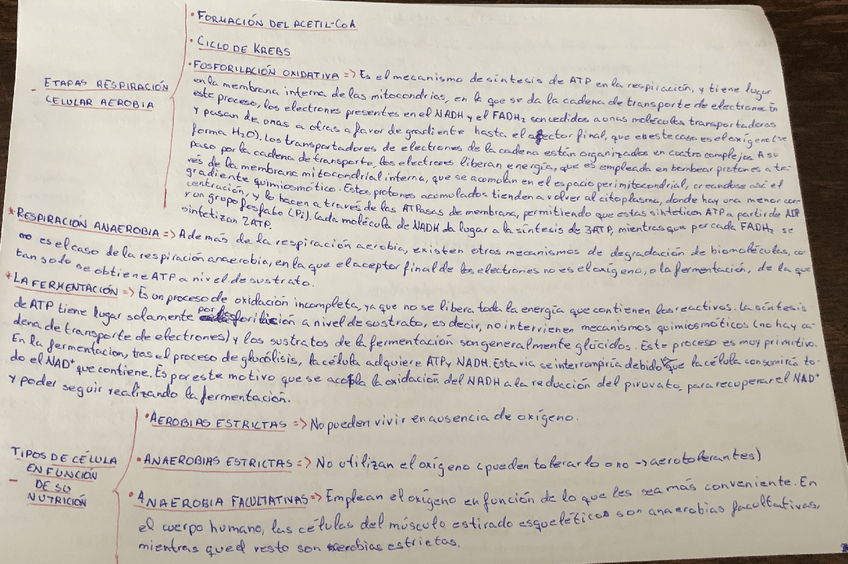 • FORMACIÓN DEL ACETIL-CoA
• CICLO DE KREBS
- ETAPAS RESPIRACIÓN
CELULAR AEROBIA
• FOSFORILACIÓN OXIDATIVA => Es el mecanismo de síntesis de ATP en la respiración, y tiene lugar
en la membrana interna de las mitocondrias, en la que se da la cadena de transporte de electrones. En
este proceso, los electrones presentes en el NADH y el FADH₂ son cedidos a unas moléculas transportadoras
y pasan de unas a otras a favor de gradiente hasta el aceptor final, que en este caso es el oxígeno (se
forma H₂O). Los transportadores de electrones de la cadena están organizados en cuatro complejos. A su
paso por la cadena de transporte, los electrones liberan energía, que es empleada en bombear protones a tra-
vés de la membrana mitocondrial interna, que se acumulan en el espacio perimitocondrial, creandose así el
gradiente quimiosmótico. Estos protones acumulados tienden a volver al citoplasma, donde hay una menor con-
centración, y lo hacen a través de las ATPasas de membrana, permitiendo que estas sinteticen ATP a partir de ADP
y un grupo fosfato (Pi). Cada molécula de NADH da lugar a la síntesis de 3ATP, mientras que por cada FADH₂ se
sintetizan 2ATP.
* RESPIRACIÓN ANAEROBIA => Además de la respiración aerobia, existen otros mecanismos de degradación de biomoléculas, co-
mo es el caso de la respiración anaerobia, en la que el aceptor final de los electrones no es el oxígeno, o la fermentación, de la que
tan solo se obtiene ATP a nivel de sustrato.
* LA FERMENTACIÓN => Es un proceso de oxidación incompleta, ya que no se libera toda la energía que contienen los reactivos. La síntesis
de ATP tiene lugar solamente por fosforilación a nivel de sustrato, es decir, no intervienen mecanismos quimiosmóticos (no hay ca-
dena de transporte de electrones) y los sustratos de la fermentación son generalmente glúcidos. Este proceso es muy primitivo.
En la fermentacion, tras el proceso de glucólisis, la célula adquiere ATP y NADH. Esta vía se interrumpiría debido a que la célula consumiría to-
do el NAD⁺ que contiene. Es por este motivo que se acopla la oxidación del NADH a la reducción del piruvato, para recuperar el NAD⁺
y poder seguir realizando la fermentación.
• AEROBIAS ESTRICTAS => No pueden vivir en ausencia de oxígeno.
- TIPOS DE CÉLULA
EN FUNCIÓN
DE SU
NUTRICIÓN
• ANAEROBIAS ESTRICTAS => No utilizan el oxígeno (pueden tolerarlo o no -> aerotolerantes)
• ANAEROBIA FACULTATIVAS => Emplean el oxígeno en función de lo que les sea más conveniente. En
el cuerpo humano, las células del músculo estirado esquelético son anaerobias facultativas,
mientras que el resto son aerobias estrictas.